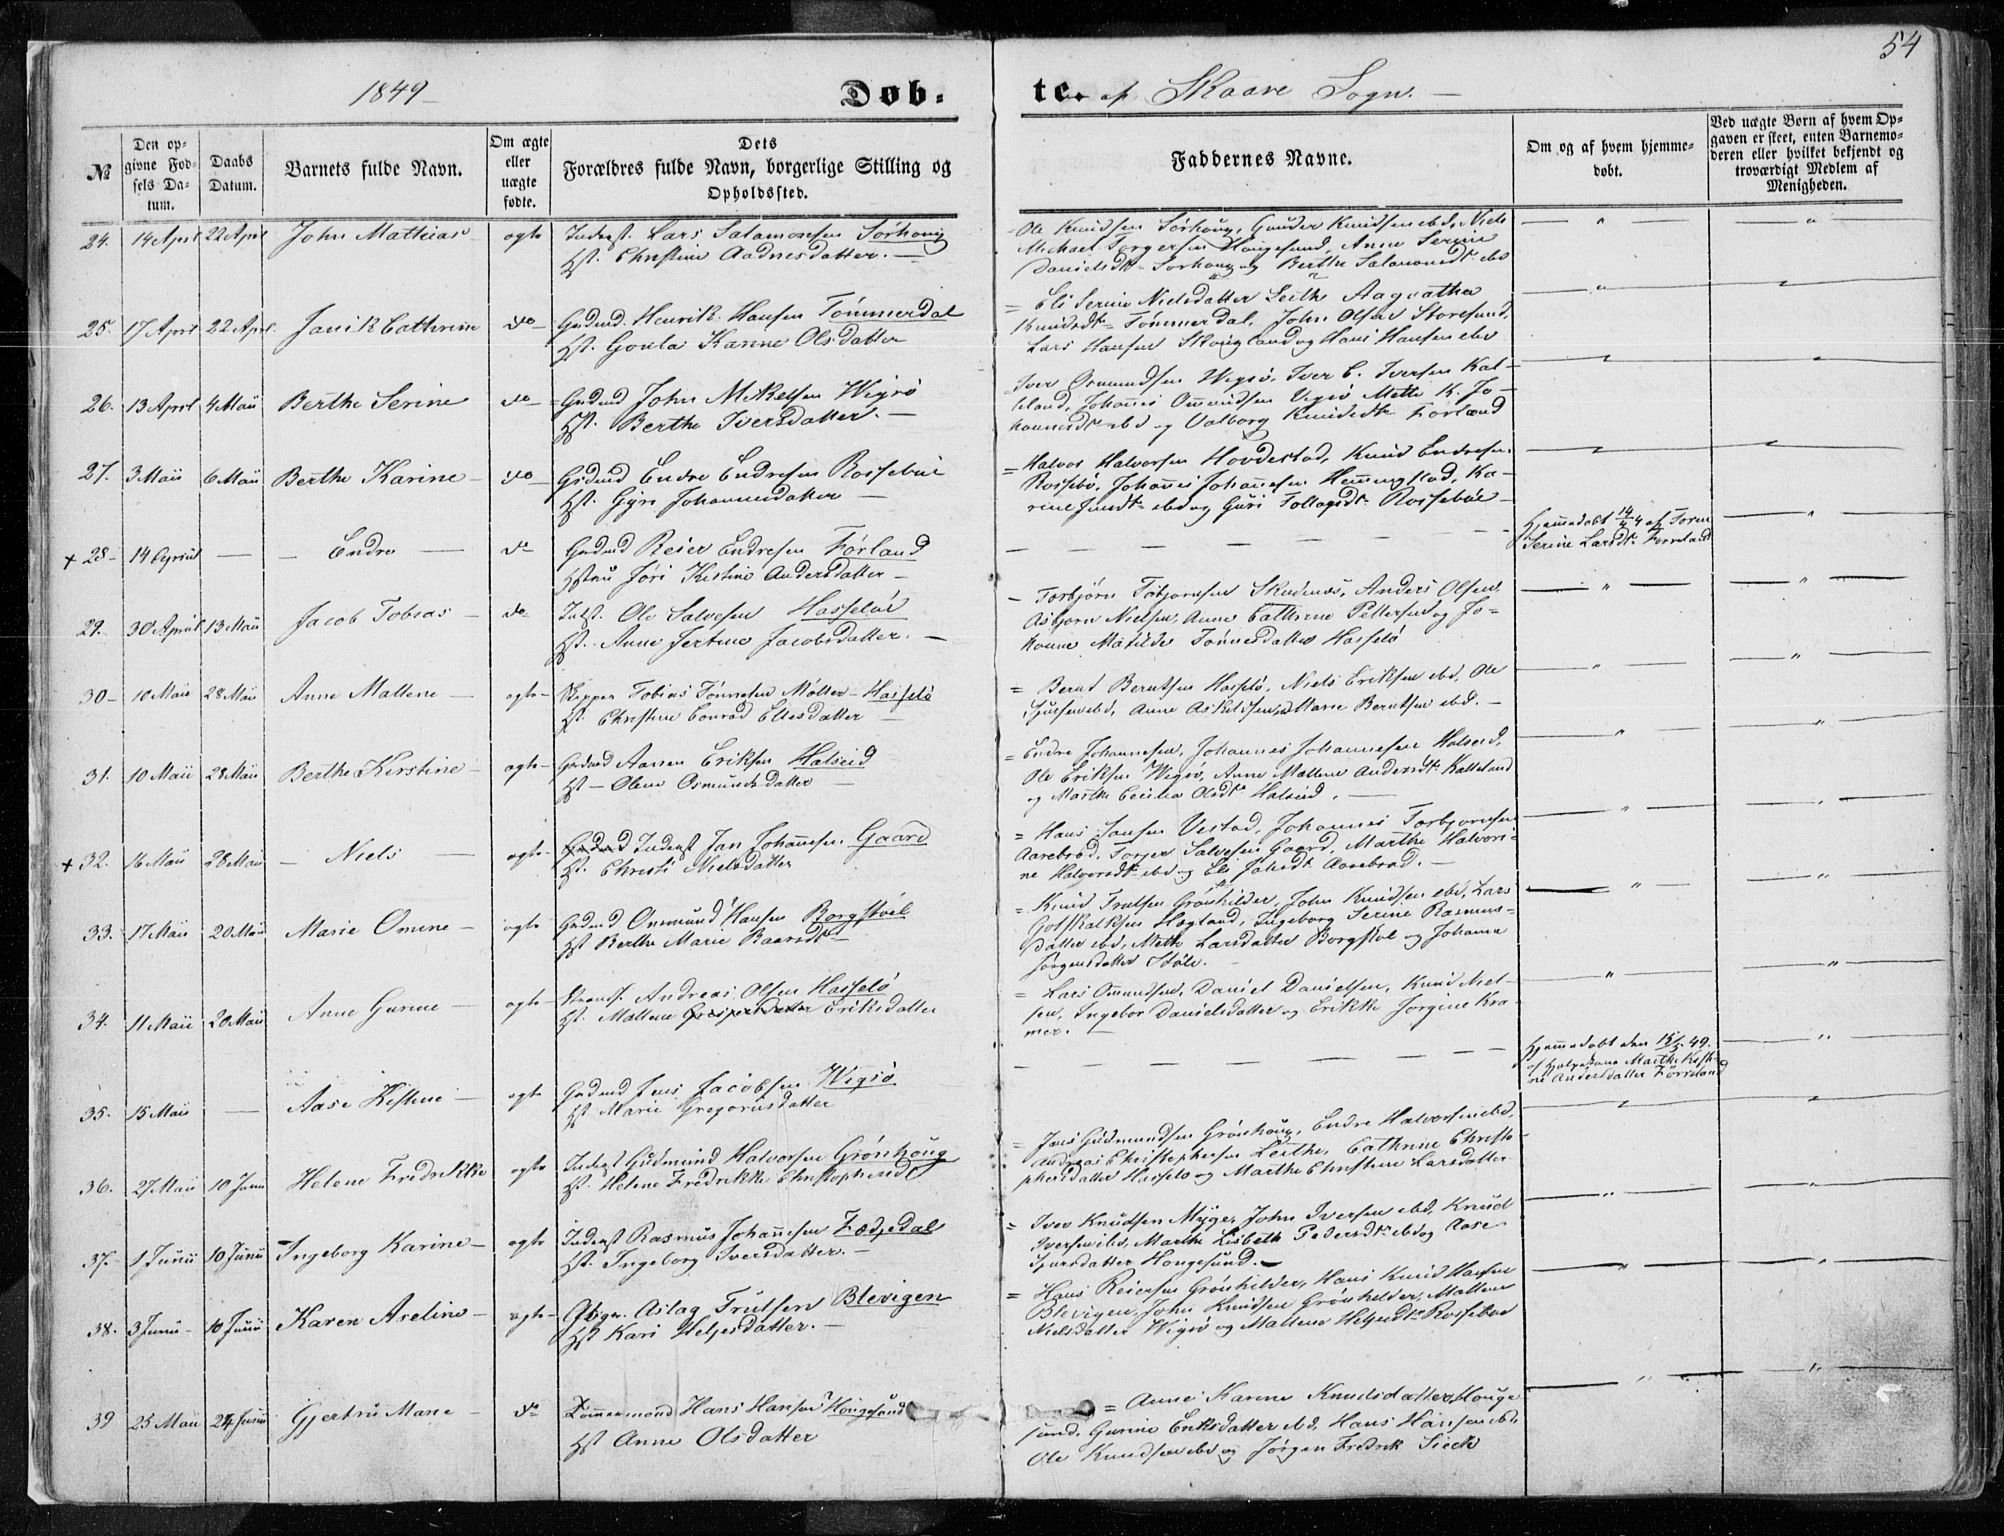 54
1849
Døb-
te. af Skaare Sogn.
№
Den op-
givne Fød-
sels Da-
tum.
Daabs
Datum.
Barnets fulde Navn.
Om ægte
eller
uægte
fødte.
Dets
Forældres fulde Navn, borgerlige Stilling og
Opholdssted.
Faddernes Navne.
Om og af hvem hjemme-
døbt.
Ved uægte Børn af hvem Op-
gaven er skeet, enten Barnemo-
deren eller hvilket bekjendt og
troværdigt Medlem af
Menigheden.
24. 14 April 22 April John Mathias ægte Inderst. Lars Salamonsen Sørhoug
Hst. Christine Aadnesdatter.
Ole Knudsen Sørhoug, Gunder Knudsen ebd, Niels
Michael Torgersen Hougesund, Anne Serine
Danielsdt. Sørhoug og Berthe Salamonsdt ebd
25. 17 April 22 April Janik Cathrine do Gudmd. Henrik Hansen Tømmerdal
Hst. Karine Olsdatter
Eli Serine Nielsdatter Leithe Aagaatha
Knudsdt. Tømmerdal, John Olsen Storesund,
Lars Hansen og Hans Hansen ebd
26. 13 April 4 Maii Berthe Serine do Gudmd John Mikelsen Wigsø
Hst. Berthe Iversdatter.
Iver Osmundsen Wigsø, Iver C. Iversen Kal-
land, Johannes Omundsen Vigsø Mette K. Jo-
hannesdt ebd og Valborg Knudsdt Førland
27. 3 Maii 6 Maii Berthe Karine do Gudmd Endre Endresen Rossebøe
Hst. Gyri Johannesdatter
Halvor Halvorsen Hovdestad, Knud Endresen
Rossebø, Johannes Johannesen Hemmingstad, Ka-
rine ebd og Guri Rossebøe
+ 28 14 April Endre do Gudmd Reier Endresen Førland
Hstru Jøri Kistine Andersdatter
Hjemmedøbt 14/4 af Toren
Serine Larsdt. Førreland
29. 30 April 13 Maii Jacob Tobias do Indst. Ole Salvesen Hasseløe
Hst. Anne Jertine Jacobsdatter.
Torbjørn Tobjørnsen Skudenæs, Anders Olsen
Asbjørn Nielsen, Anne Cathrine Pettersen og Jo-
hanne Matilde Tønnesdatter Hasselø
30 10 Maii 28 Maii Anne Mallene ægte Skipper Tobias Tønnesen Møller Hasselø
Hst. Christine Conrad Ellesdatter
Bernt Berntsen Hasselø, Niels Eriksen ebd, Ole
Sjursen ebd, Anne Askildsen, Marie Berntsen ebd.
31. 10 Maii 28 Maii Berthe Kirstine ægte Gudmd Aanen Eriksen Halseid
Hst Olene Osmundsdatter
Endre Johannesen, Johannes Johannesen Halseid,
Ole Eriksen Wigsø, Anne Mallene Andersdt. Kalleland
og Marthe Cecilia Olsdt. Halseid.
+ 32. 16 Maii 28 Maii Niels ægte Gudmd Inderst Jan Johannesen Gaard
Hst. Christi Nielsdatter
Hans Jansen Vestad, Johannes Torbjørnsen
Aarebrod, Torger Salvesen Gaard, Marthe Halvori-
ne Halvorsdt ebd og Eli Johsdt Aarebrod.
33. 17 Maii 20 Maii Marie Omine ægte Gudmd Onmund Hansen Borgstøel
Hst Berthe Marie Baarsdt
Knud Trulsen Grønhilder, John Knudsen ebd, Lars
Gotskalksen Høgland, Ingeborg Serine Rasmus-
datter ebd, Mette Larsdatter Borgstøl og Johanne
Jørgensdatter Støle.
34. 11 Maii 20 Maii Anne Gurine ægte Strands. Andreas Olsen Hasselø
Hst. Mallene Eriksdatter
Lars Omundsen, Daniel Danielsen, Knud Niel-
sen, Ingebor Danielsdatter og Erikke Jorgine Kra-
mer.
35. 15 Maii Aase Kistine ægte Gudmd Jens Jacobsen Wigsø
Hst Marie Gregoriusdatter
Hjemmedøbt den 15/5 49.
af Marthe Kisti-
ne Andersdatter Førreland
36. 27 Maii 10 Junii Helene Fredrikke ægte Inderst Gudmund Halvorsen Grønhoug
Hst. Helene Fredrikke Christophersdt
Jens Gudmundsen Grønhoug, Endre Halvorsen ebd,
Andreas Christophersen Leithe, Cathrine Christo-
phersdatter Hasselø og Marthe Christine Larsdatter
37. 1 Junii 10 Junii Ingeborg Karine ægte Inderst Rasmus Johannesen
Hst. Ingeborg Iversdatter.
Iver Knudsen Myge, John Iversen ebd, Knud
Iversen ebd, Marthe Lisbeth Pedersdt ebd og Aase
Sjursdatter Hougesund.
38. 3 Junii 10 Junii Karen Aseline ægte Aslag Trulsen Blevigen
Hst Kari Heljesdatter.
Hans Reiersen Grønhilder, Hans Knud Hansen
Blevigen, John Knudsen Grønhilder, Mallene
Nielsdatter Wigsø og Mallene Heljesdt Rossebøe
39 25 Maii 24 Junii Gjertru Marie do Tømmermand Hans Hansen Hougesund
Hst Anne Olsdatter
Anne Karine Knudsdatter Houge
sund. Gurine Eriksdatter ebd, Hans Hansen ebd,
Ole Knudsen ebd og Jørgen Fredrik Sieck